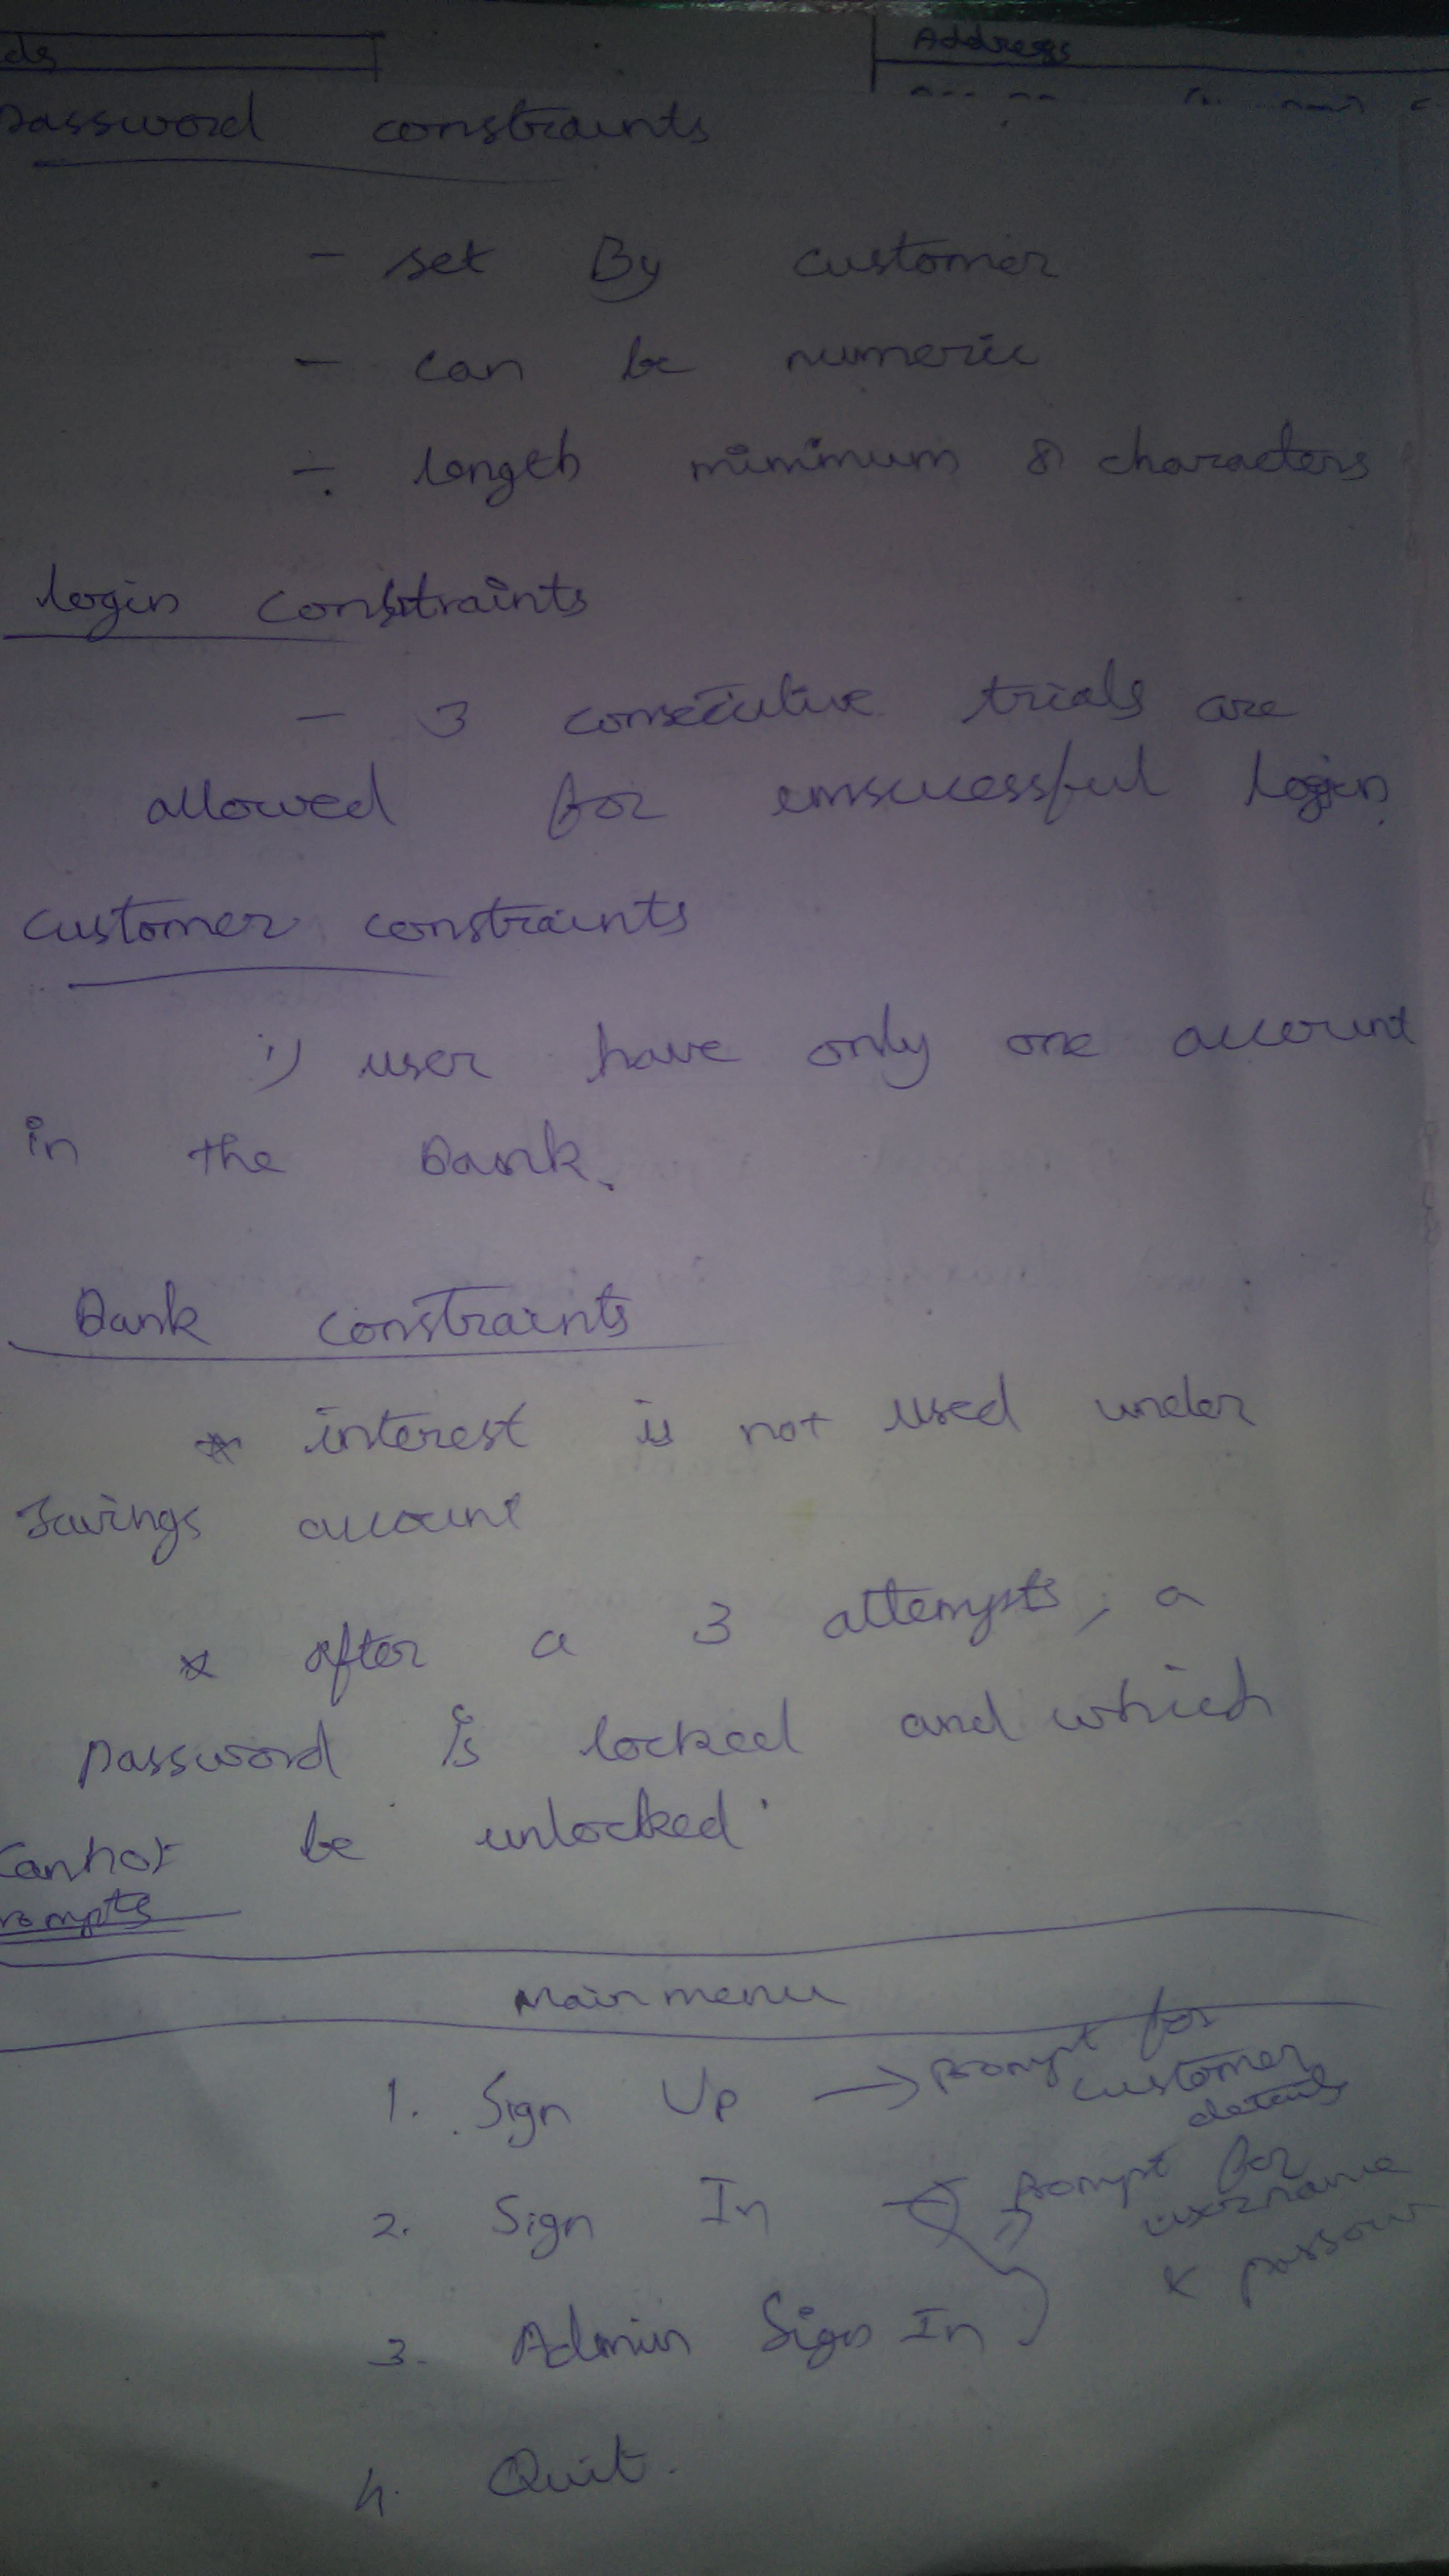 ds
Address
password constraints
- set By customer
- can be numeric
- length minimum 8 characters
login constraints
- 3 consecutive trials are
allowed for unsucessful login.
customer constraints
i) user have only one account
in the bank.
Bank constraints
* interest is not used under
savings account
* after a 3 attempts, a
password is locked and which
cannot be unlocked.
rompts
Main menu
1. Sign Up → prompt for
customer
details
2. Sign In prompt for
username
& passwor
3. Admin Sign In
4. Quit.